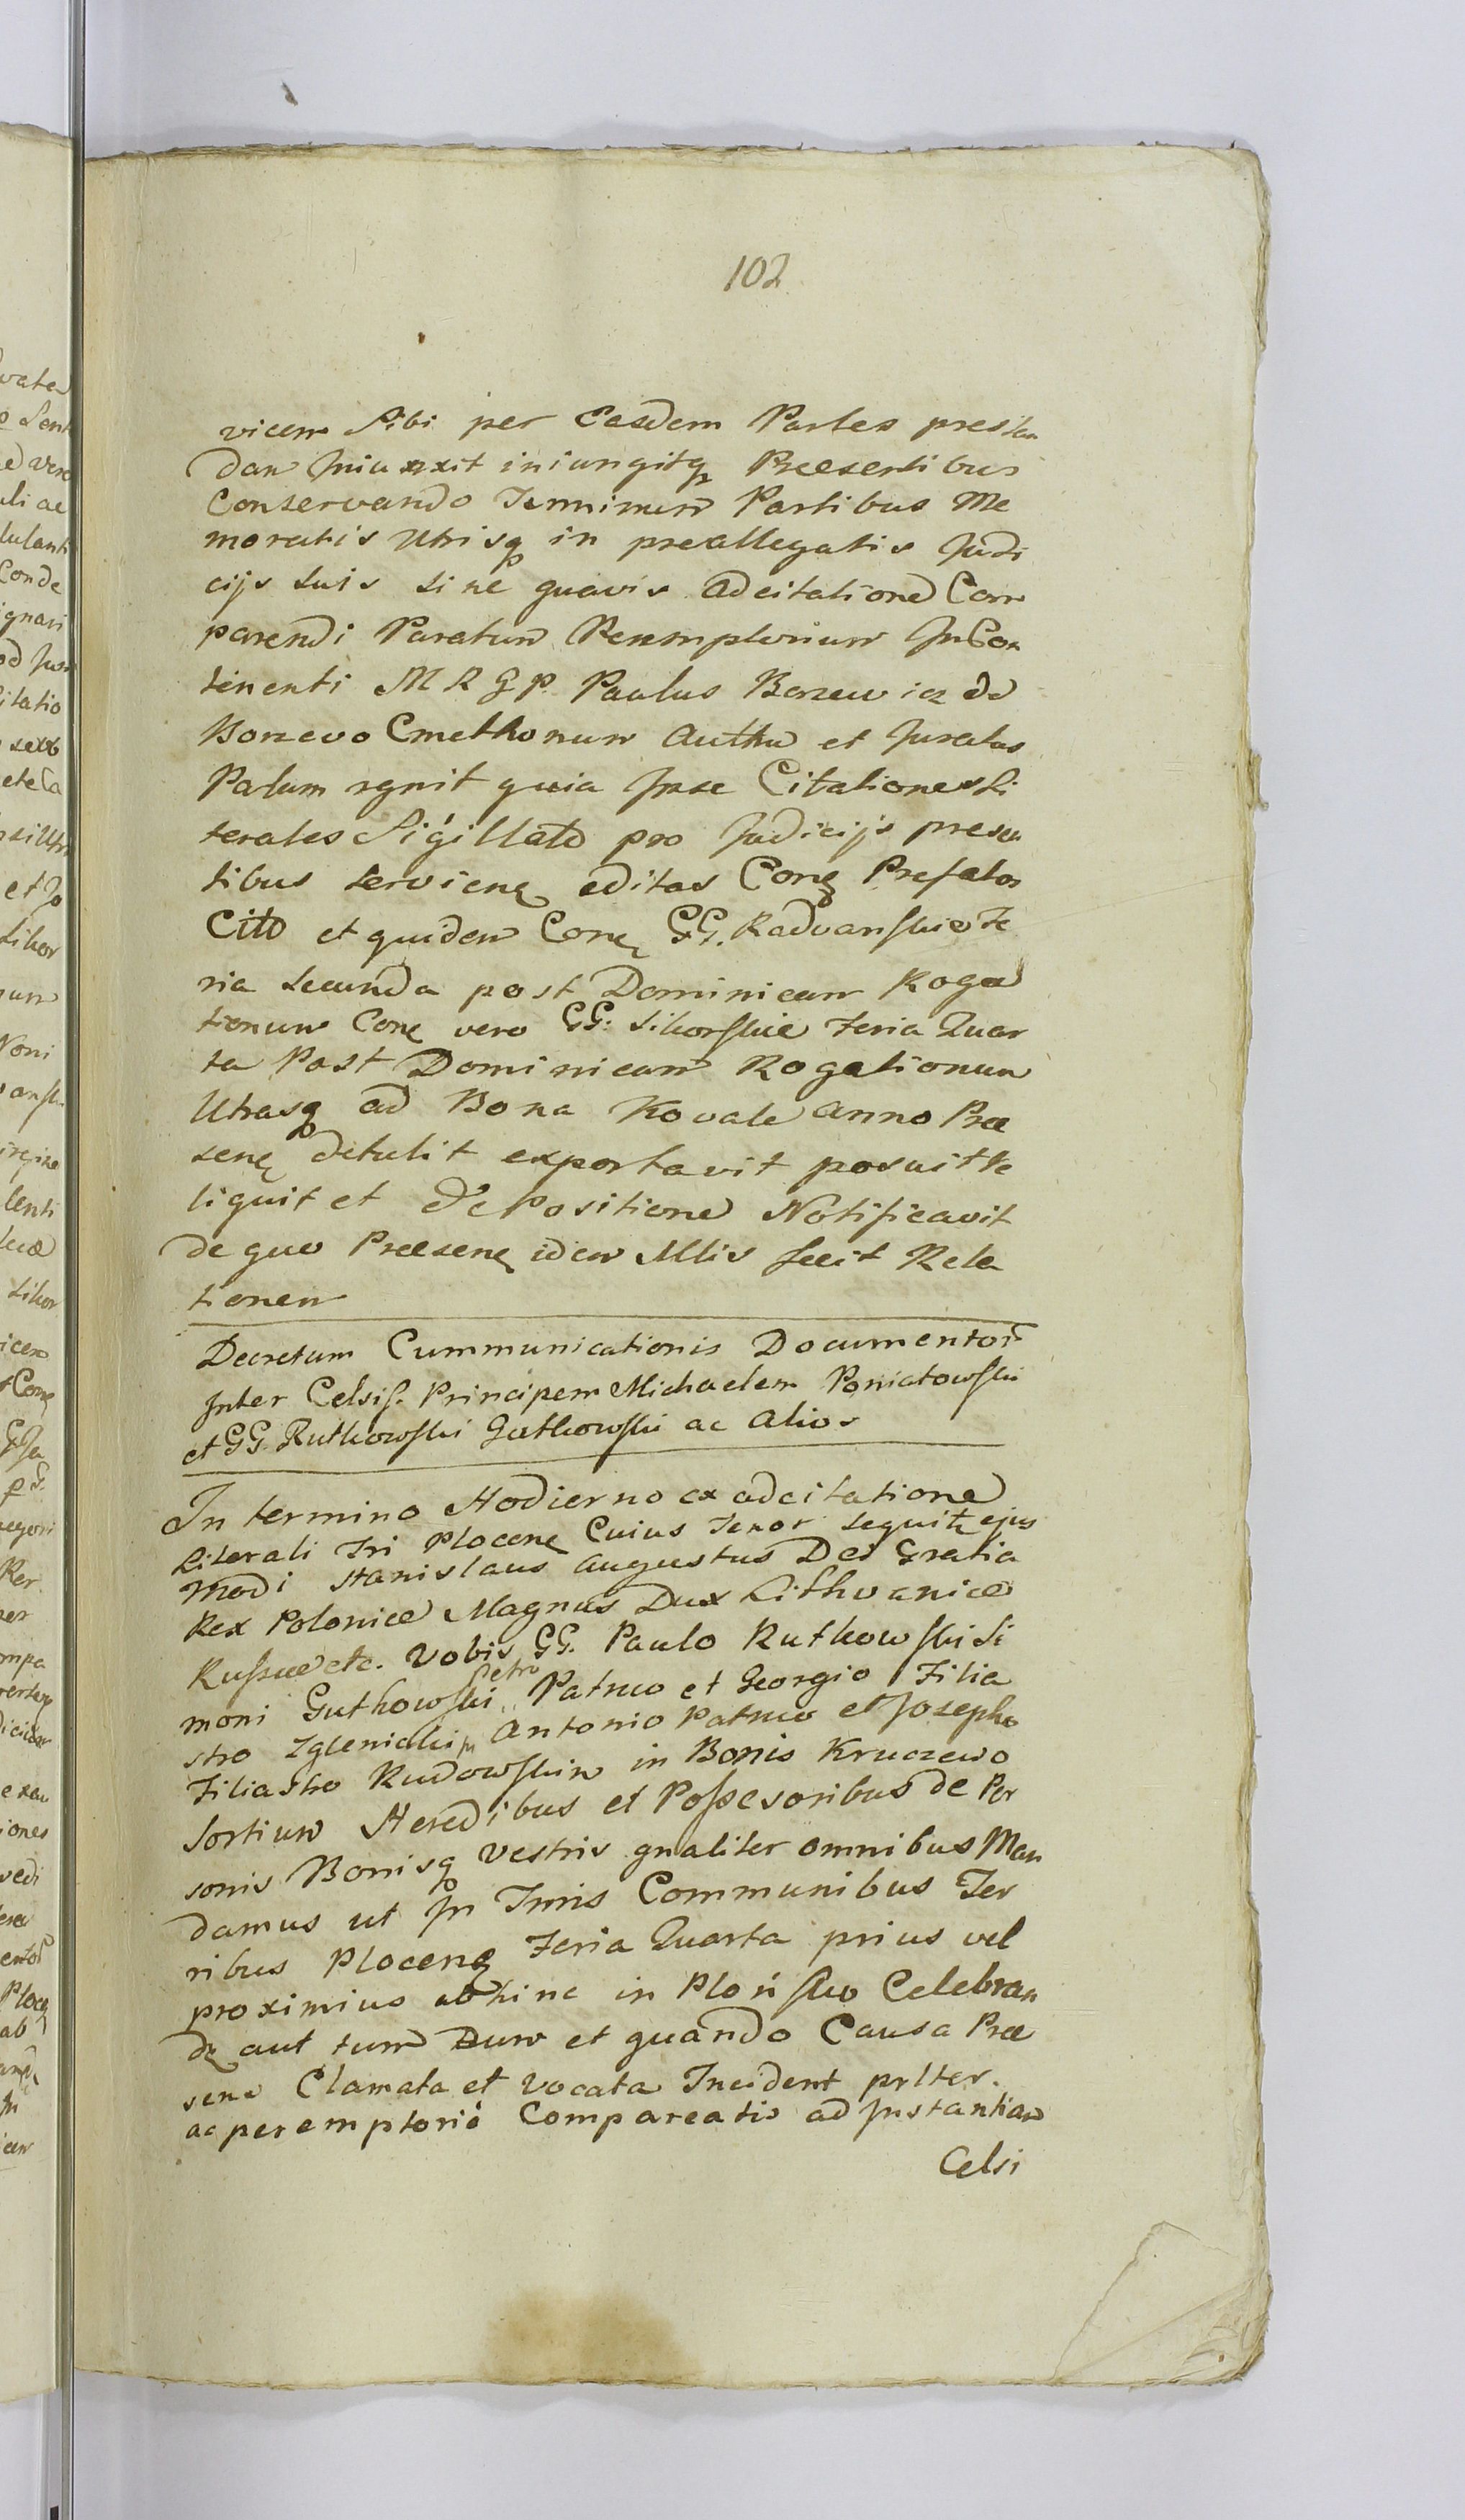 102
vicem Sibi per Easdem Partes presten
dan Iniunxit iniungitq Præsentibus
Conservando Terminum Partibus Me
moratis Utrisq in preallegatis Judi
cijs suis sine quavis adcitatione Com
parendi Paratum Peremptorium In Con
tinenti M R G P. Paulus Borzewicz de
Borzevo Cmethonum Authen et Juratus
Palum rgnit quia Ipse Citationes Li
terales Sigillatd pro Judicijs presen
tibus servienę editas Conę Prefatos
Citd et quidem Conę GG. Radvanskie Fe
ria secunda post Dominicam Roga
tionum Conę vero GG: Sikorskie Feria Quar
ta Post Dominicam Rogationum
Utrasq ad Bona Kovale anno Præ
senę detulit exportavit posuit Re
liquit et de Positione Notificavit
de quo Præsenę idem Mlis fecit Rela
tionem
Decretum Cummunicationis Documentor
Inter Celsiss. Principem Michaelem Poniatowski
et GG. Rutkowski Gutkowski ac Alios
In termino Hodierno ex adcitatione
Literali Tri Plocenę Cuius Tenor sequitr ejus
modi Stanislaus Augustus Dei Gratia
Rex Poloniæ Magnus Dux Lithvaniæ
Russiæ etc. Vobis GG. Paulo Rutkowski Si
moni Gutkowski Petro Patruo et Georgio Filia
stro Zglenicki Antonio Patruo et Josepho
Filiastro Rudowskim in Bonis Kruczewo
Sortium Heredibus et Possesoribus de Per
sonis Bonisq Vestris gnaliter omnibus Man
damus ut In Tmis Communibus Ter
ribus Plocenę Feria Quarta prius vel
proximius abhinc in Płońsko Celebran
dę aut tum Dum et quando Causa Præ
sens Clamata et Vocata Incident prlter.
ac peremptorié Compareatis ad Instantiam
Celsi